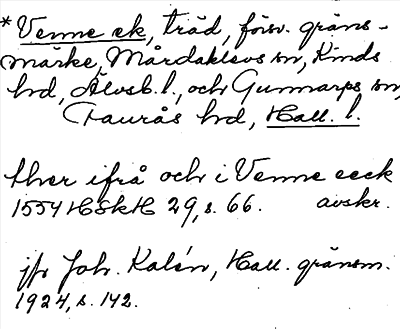 * Venne ek, träd, försv. gräns-
märke, Mårdaklevs sn, Kinds
hd, Älvsb. l., och Gunnarps sn,
Faurås hd, Hall. l.
thær ifrå och i Venne eeck
1554 HSkH 29, s. 66. avskr.
jfr Joh. Kalén, Hall. gränsm.
1924, s. 142.